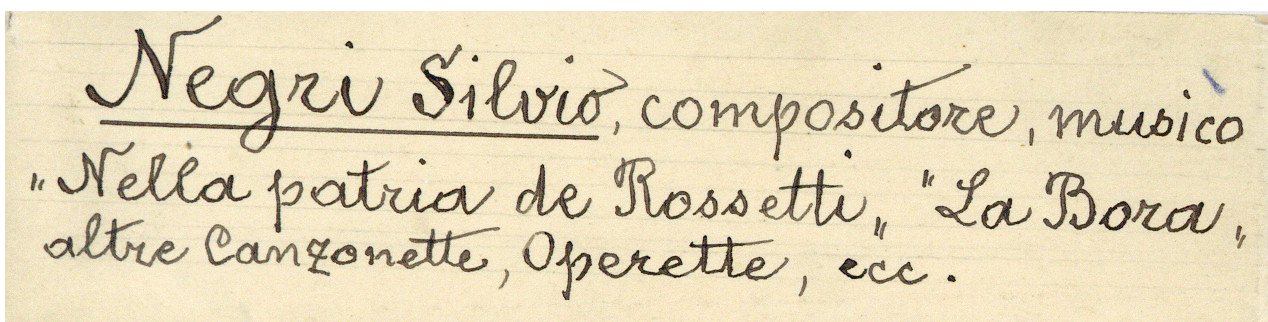 Negri Silvio, compositore, musicò
"Nella patria de Rossetti„ "La Bora„
altre Canzonette, Operette, ecc.